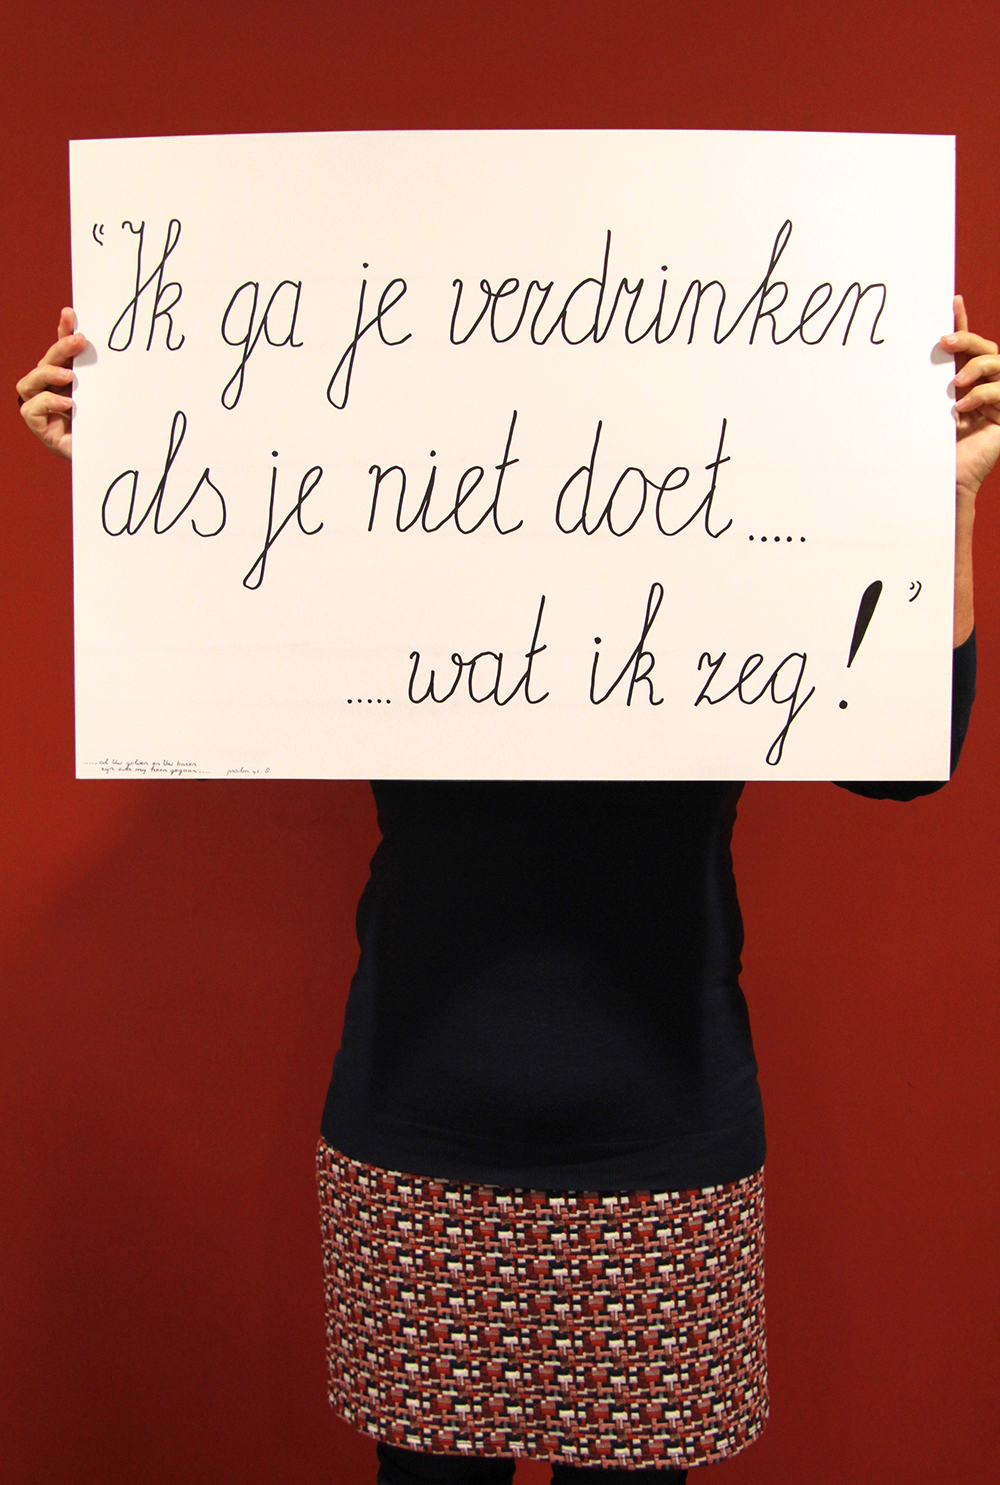 “Ik ga je verdrinken
als je niet doet.....
.....wat ik zeg!”
.....al Uw golven en Uw baren
zijn over mij heen gegaan.....  psalm 42:8